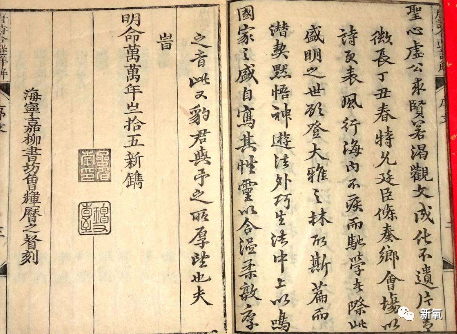 聖心虛公求賢若渴觀文成化不遺片
丁丑春特允廷臣條奏鄉會場以
詩表風行海內不疾而馳學士際此
盛明之世欲登大雅之林於斯篇而
潜契默悟神遊法外巧生法中上以鳴
國家之盛自寫其性靈以合溫柔敦厚
之音此又豹君與予之所厚望也夫
旹
明命萬萬年拾五新鐫
海寧嘉柳書坊曆之督刻
新氧